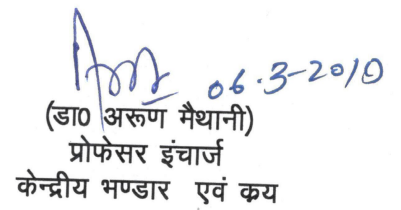 06.3-2010
(डा0 अरूण मैथानी)
प्रोफेसर इंचार्ज
केन्द्रीय भण्डार एवं क्रय